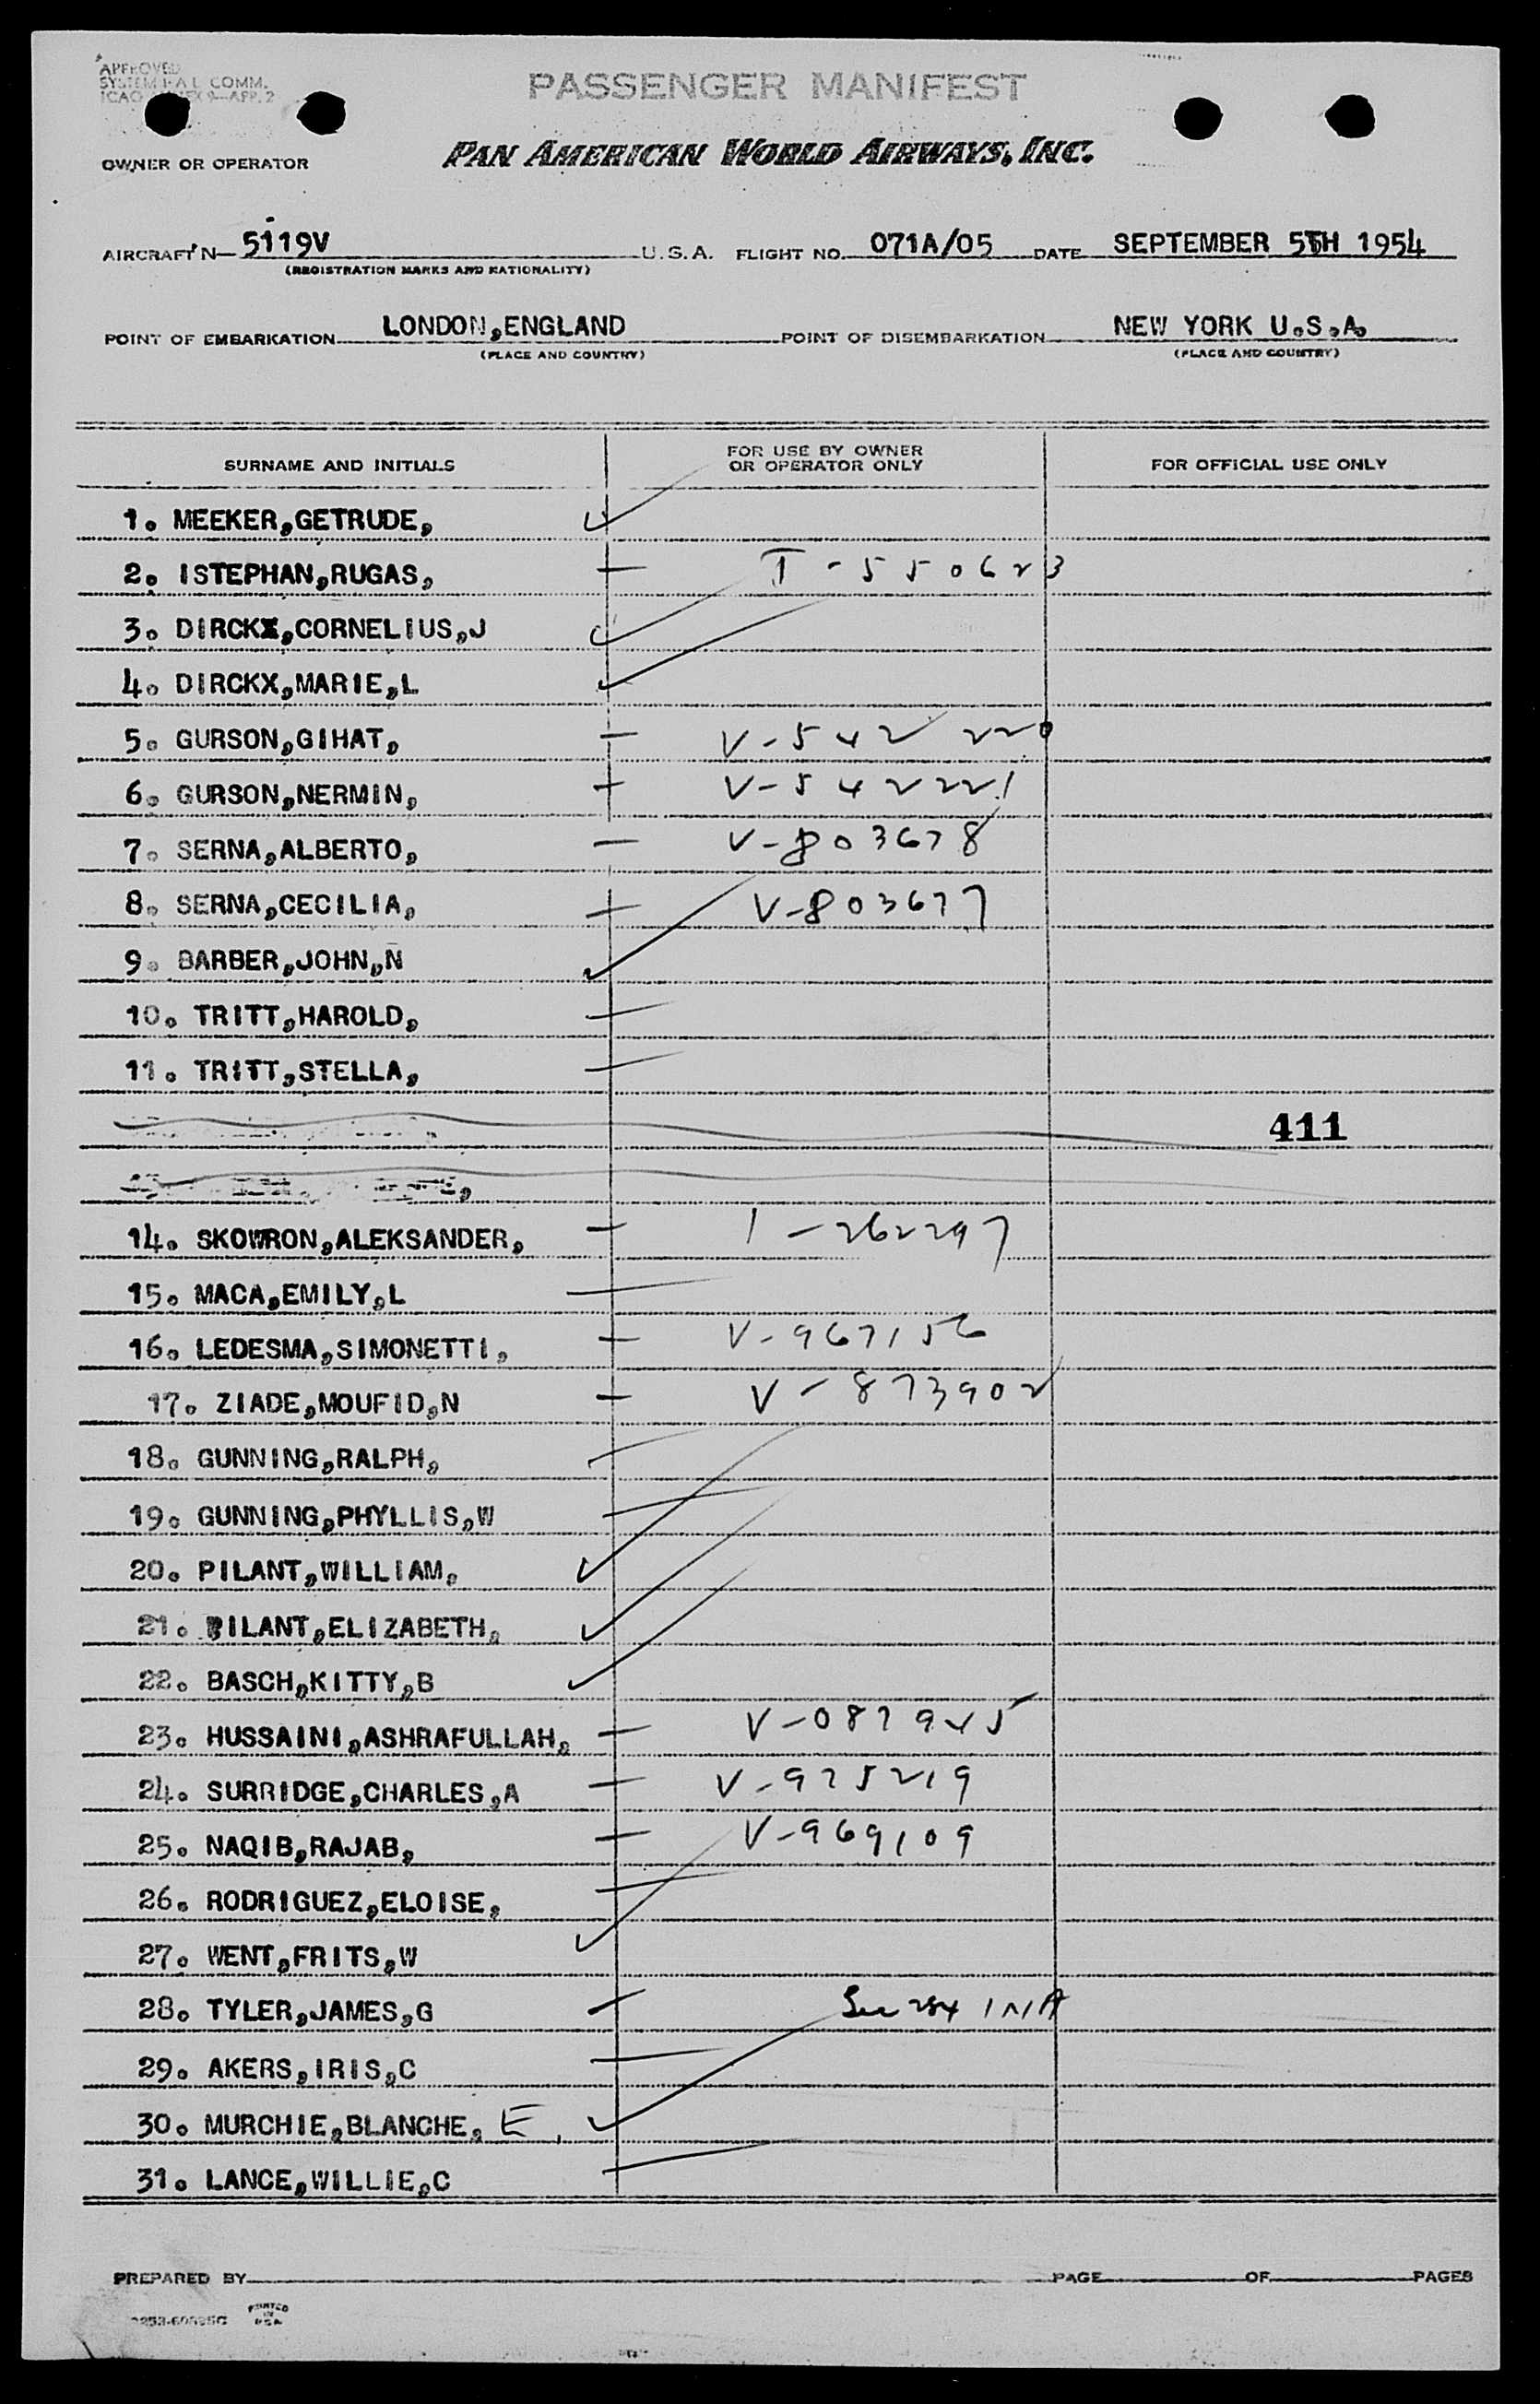 APPROVED
SYSTEM P.A.L. COMM.
ICAO ANNEX 9—APP. 2
PASSENGER MANIFEST
OWNER OR OPERATOR PAN AMERICAN WORLD AIRWAYS, INC.
AIRCRAFT N— 5119V U.S.A. FLIGHT NO. 071A/05 DATE SEPTEMBER 5TH 1954
(REGISTRATION MARKS AND NATIONALITY)
POINT OF EMBARKATION LONDON,ENGLAND POINT OF DISEMBARKATION NEW YORK U.S.A.
(PLACE AND COUNTRY) (PLACE AND COUNTRY)
SURNAME AND INITIALS FOR USE BY OWNER OR OPERATOR ONLY FOR OFFICIAL USE ONLY
1. MEEKER,GETRUDE,
2. ISTEPHAN,RUGAS, — I-550623
3. DIRCKX,CORNELIUS,J
4. DIRCKX,MARIE,L
5. GURSON,GIHAT, — V-542220
6. GURSON,NERMIN, — V-542221
7. SERNA,ALBERTO, — V-803678
8. SERNA,CECILIA, — V-803677
9. BARBER,JOHN,N
10. TRITT,HAROLD,
11. TRITT,STELLA,
411
14. SKOWRON,ALEKSANDER, — 1-262297
15. MACA,EMILY,L
16. LEDESMA,SIMONETTI, — V-967156
17. ZIADE,MOUFID,N — V-873902
18. GUNNING,RALPH,
19. GUNNING,PHYLLIS,W
20. PILANT,WILLIAM,
21. PILANT,ELIZABETH,
22. BASCH,KITTY,B
23. HUSSAINI,ASHRAFULLAH, — V-087945
24. SURRIDGE,CHARLES,A — V-975219
25. NAQIB,RAJAB, — V-969109
26. RODRIGUEZ,ELOISE,
27. WENT,FRITS,W
28. TYLER,JAMES,G Sec 284 INA
29. AKERS,IRIS,C
30. MURCHIE,BLANCHE, E.
31. LANCE,WILLIE,C
PREPARED BY PAGE OF PAGES
PRINTED
IN
USA